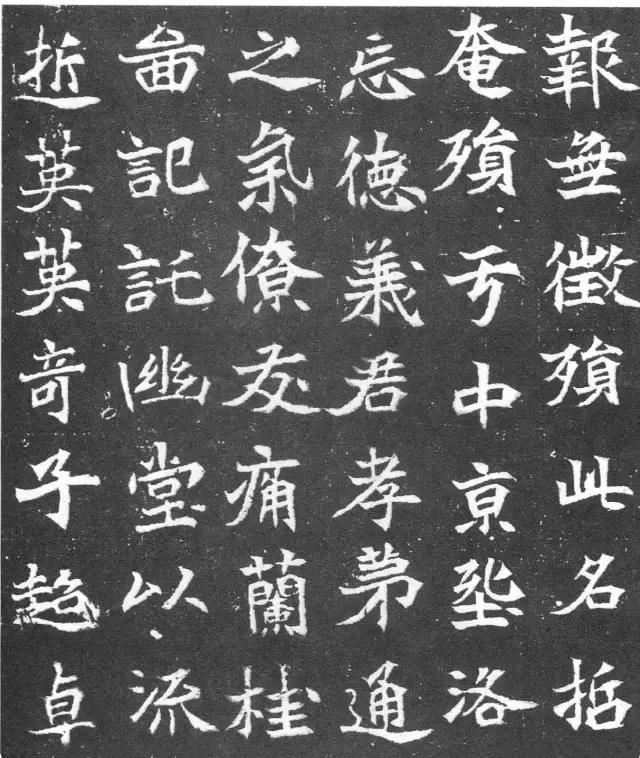 報無徵殞此名哲
奄殞亐中京塟洛
忘德義君孝弟通
之氣僚友痛蘭桂
啚記託幽堂以流
逝英英奇子超卓